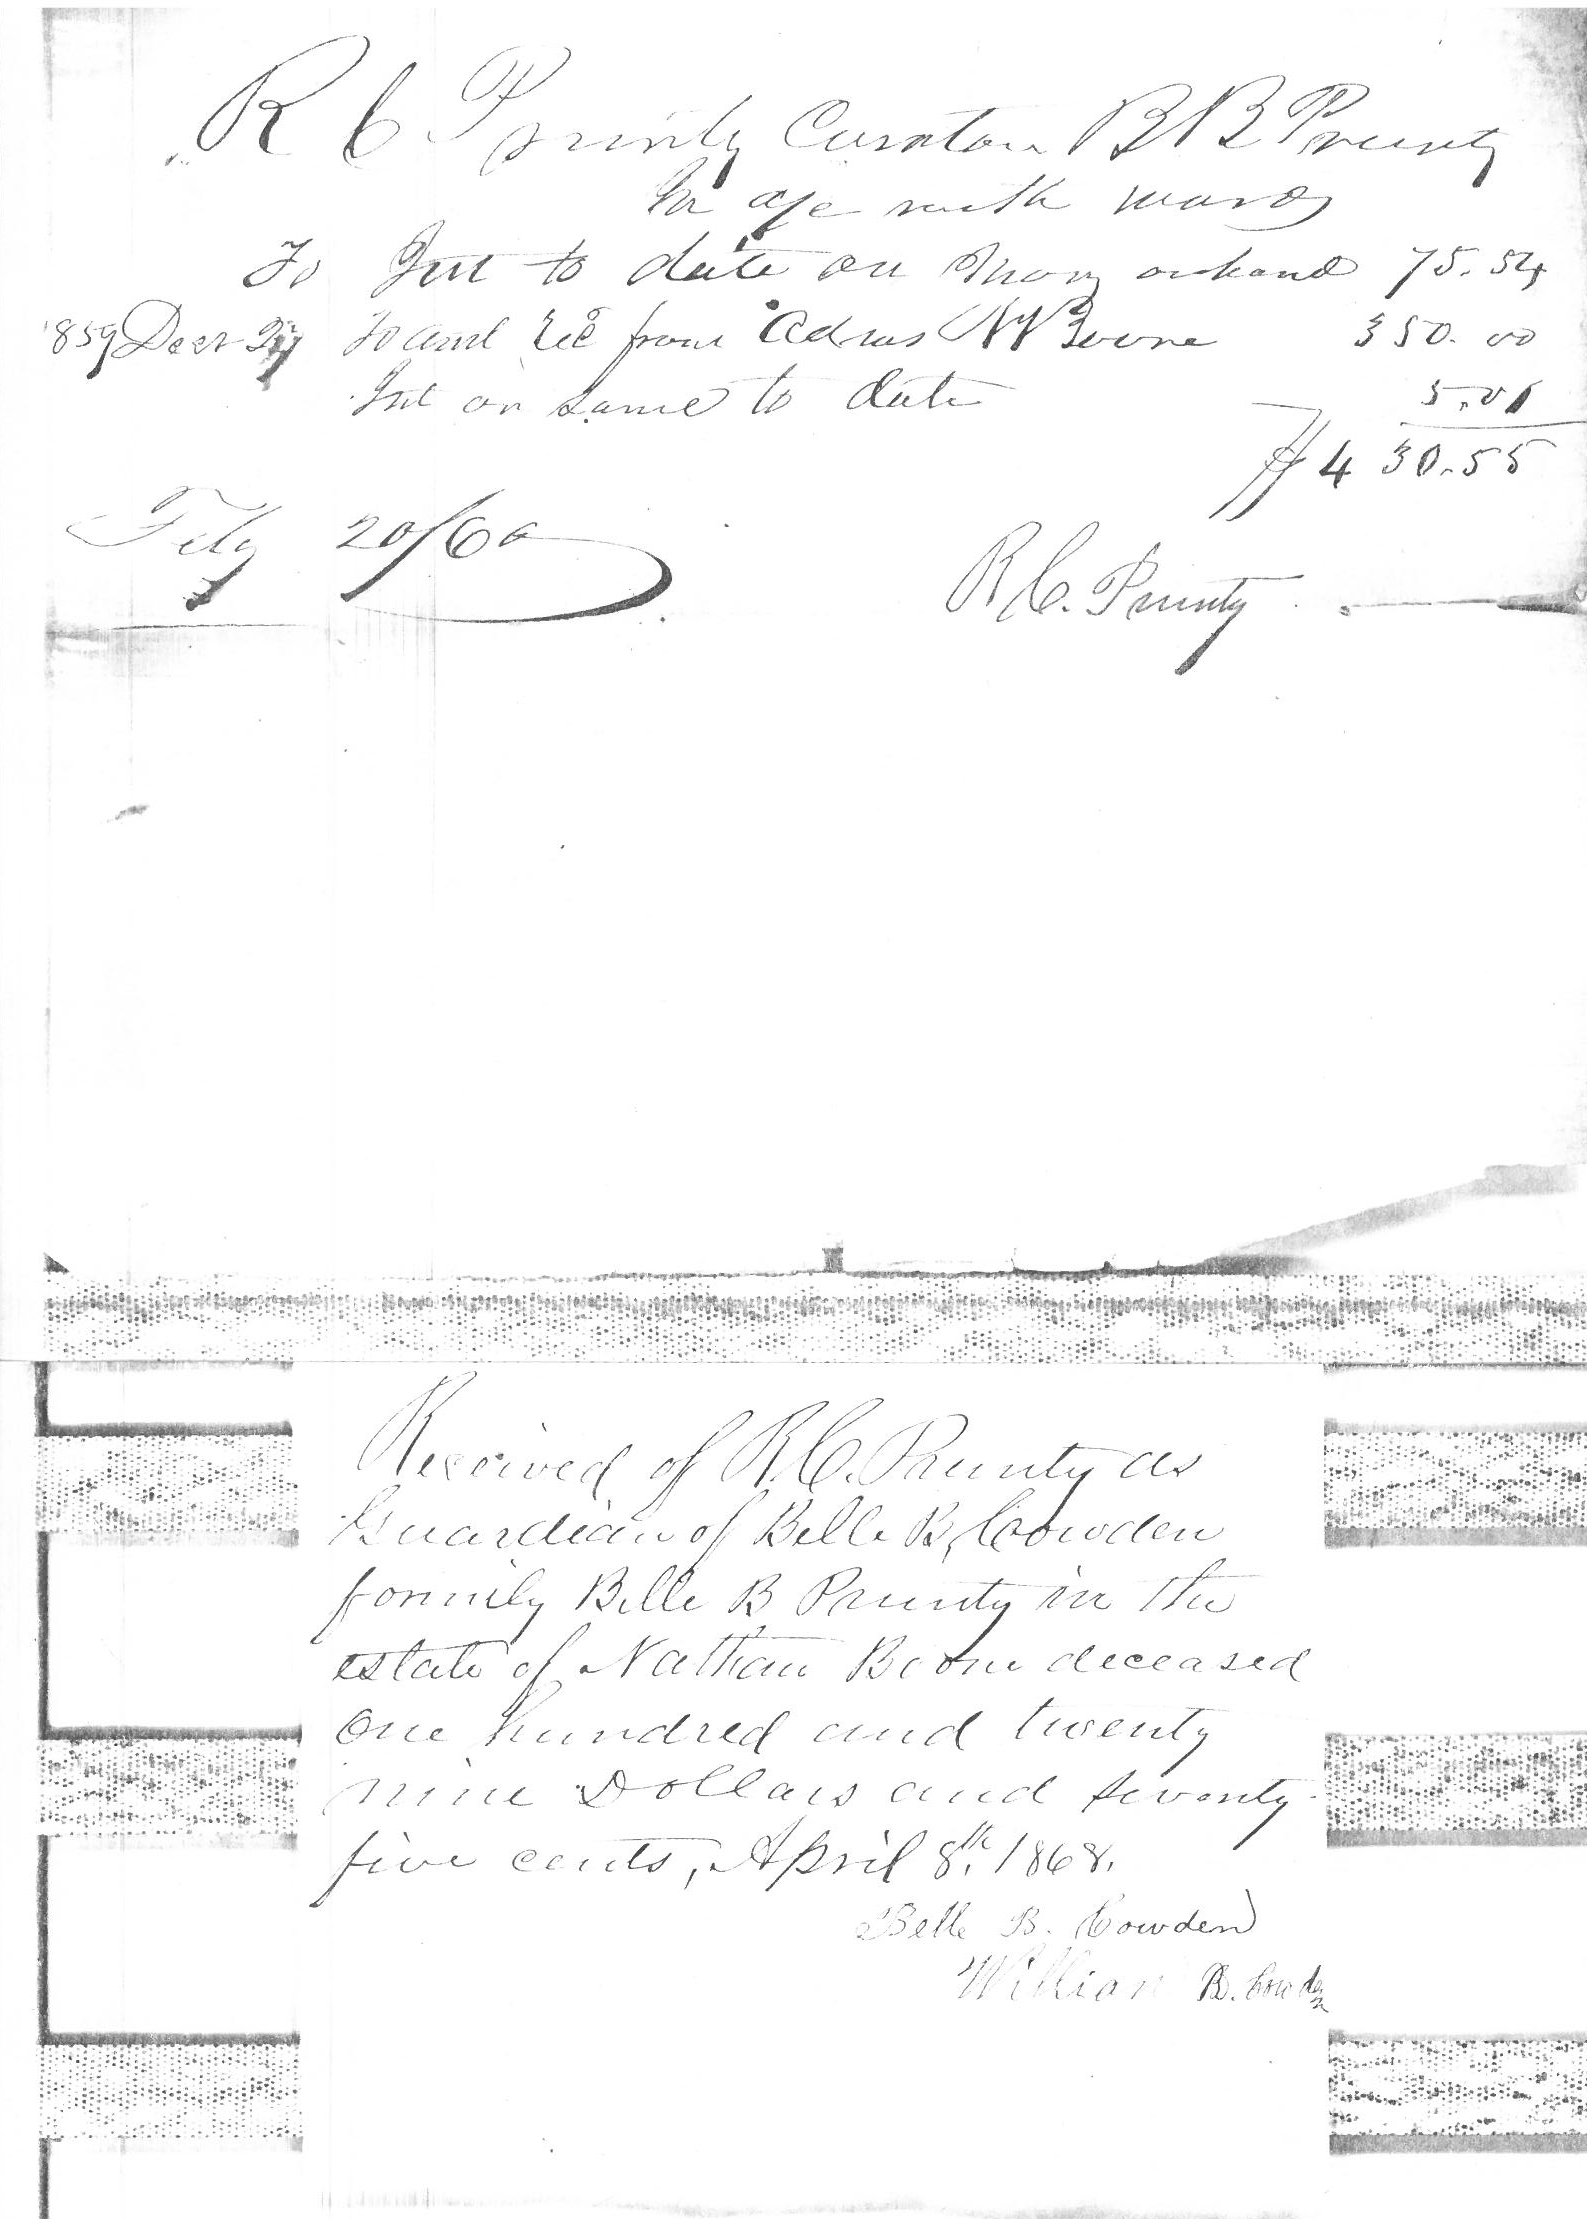 R C Prunty Curator B B Prunty
In a/c with ward
To Int to date on Mony on hand 75.54
1859 Decr 24 To amt Rec from Admrs N Boone 350.00
Int on same to date 5.01
$430.55
Feby 20/60
R C. Prunty
Received of R C. Prunty as
Guardian of Belle B, Cowden
formily Belle B Prunty in the
estate of Nathan Boone deceased
One hundred and twenty
nine Dollars and seventy
five cents, April 8th, 1868.
Belle B. Cowden
William B. Cowden